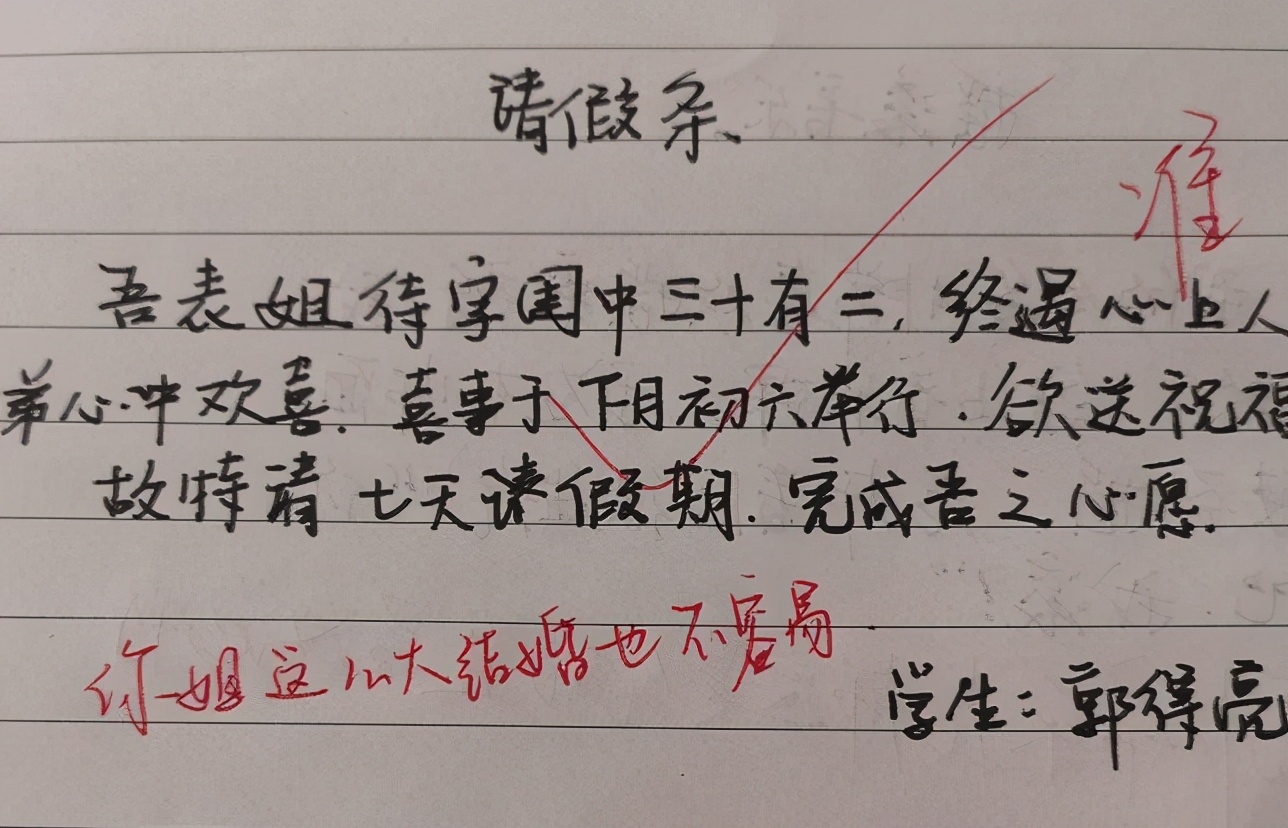 请假条
准
吾表姐待字闺中三十有二，终遇心上人
弟心中欢喜.喜事于下月初六举行.欲送祝福
故特请七天请假期.完成吾之心愿.
你姐这么大结婚也不容易
学生：郭得亮